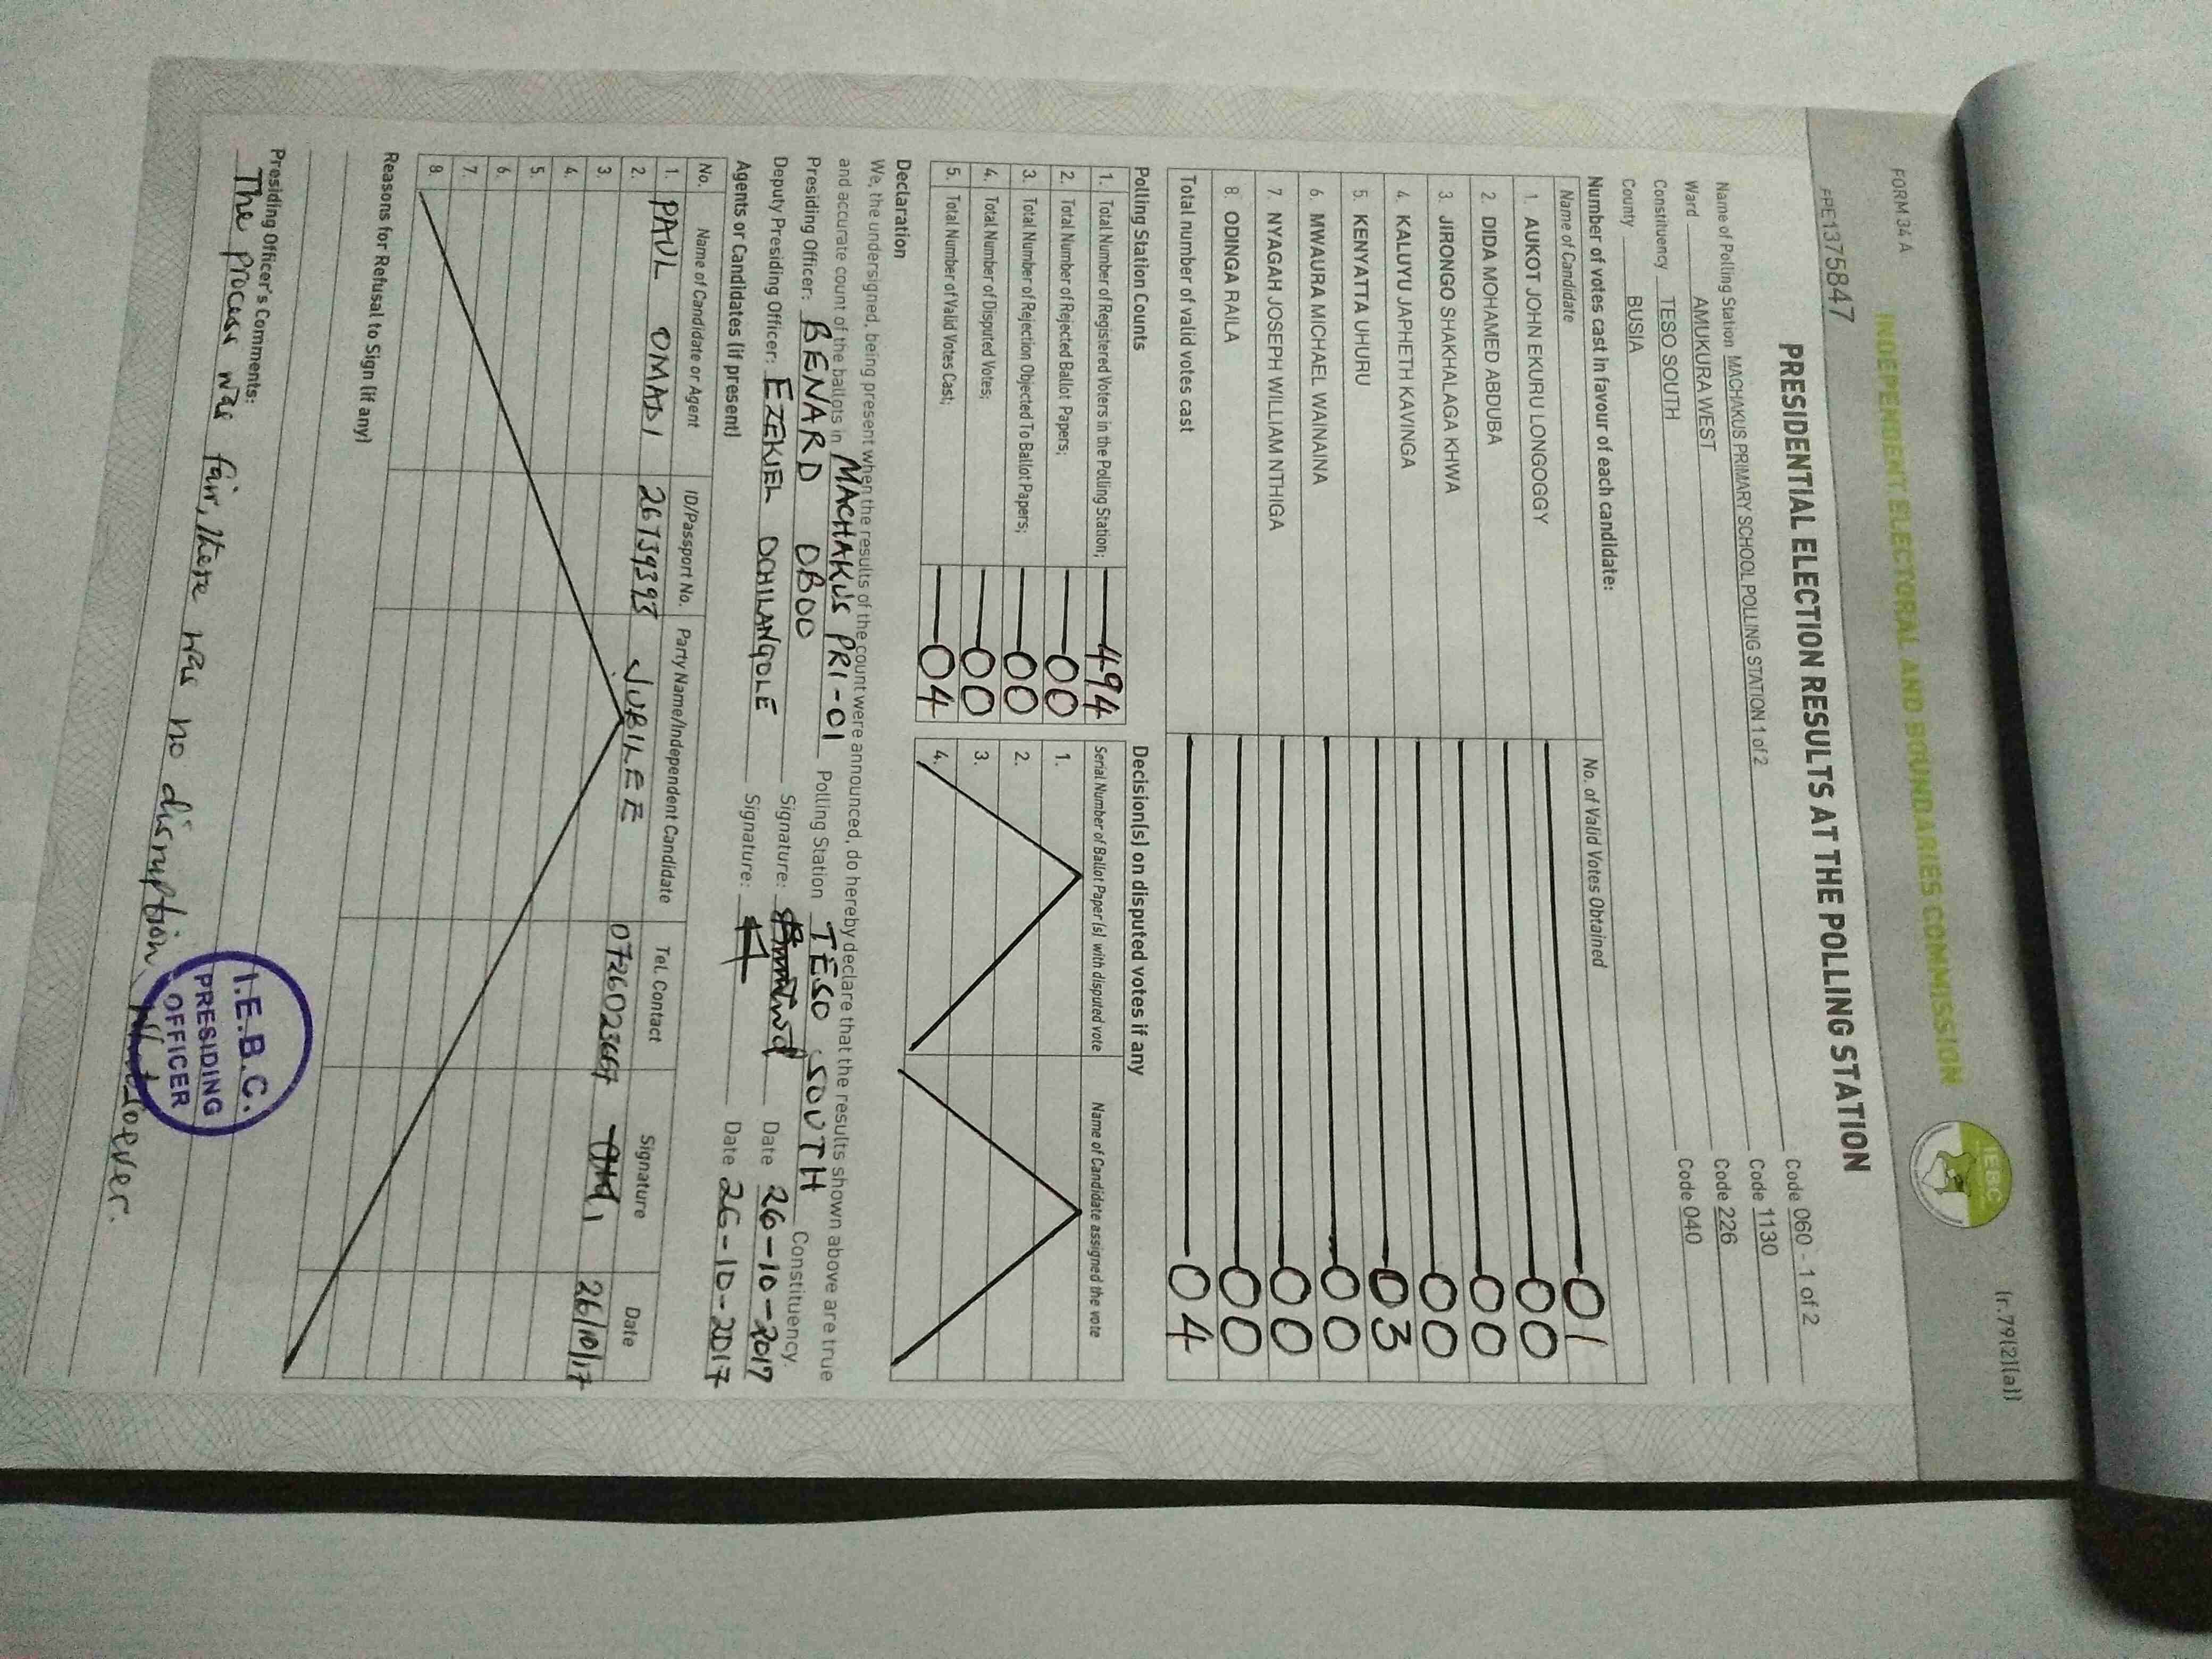 FORM 34 A
(r.79(2)(a))
INDEPENDENT ELECTORAL AND BOUNDARIES COMMISSION
IEBC
PPE1375847
PRESIDENTIAL ELECTION RESULTS AT THE POLLING STATION
Name of Polling Station MACHAKUS PRIMARY SCHOOL POLLING STATION 1 of 2 Code 060 - 1 of 2
Ward AMUKURA WEST Code 1130
Constituency TESO SOUTH Code 226
County BUSIA Code 040
Number of votes cast in favour of each candidate:
Name of Candidate No. of Valid Votes Obtained
1. AUKOT JOHN EKURU LONGOGGY 01
2. DIDA MOHAMED ABDUBA 00
3. JIRONGO SHAKHALAGA KHWA 00
4. KALUYU JAPHETH KAVINGA 00
5. KENYATTA UHURU 03
6. MWAURA MICHAEL WAINAINA 00
7. NYAGAH JOSEPH WILLIAM NTHIGA 00
8. ODINGA RAILA 00
Total number of valid votes cast 04
Polling Station Counts
1. Total Number of Registered Voters in the Polling Station; 494
2. Total Number of Rejected Ballot Papers; 00
3. Total Number of Rejection Objected To Ballot Papers; 00
4. Total Number of Disputed Votes; 00
5. Total Number of Valid Votes Cast; 04
Decision(s) on disputed votes if any
Serial Number of Ballot Paper (s) with disputed vote Name of Candidate assigned the vote
1.
2.
3.
4.
Declaration
We, the undersigned, being present when the results of the count were announced, do hereby declare that the results shown above are true
and accurate count of the ballots in MACHAKUS PRI-01 Polling Station TESO SOUTH Constituency.
Presiding Officer: BENARD OBOO Signature: Date 26-10-2017
Deputy Presiding Officer: EZEKIEL OCHILANGOLE Signature: Date 26-10-2017
Agents or Candidates (if present)
No. Name of Candidate or Agent ID/Passport No. Party Name/Independent Candidate Tel. Contact Signature Date
1. PAUL OMADI 26739393 JUBILEE 26/10/17
2.
3.
4.
5.
6.
7.
8.
Reasons for Refusal to Sign (if any)
Presiding Officer's Comments:
The process was fair, there was no disruption whatsoever.
I.E.B.C.
PRESIDING
OFFICER